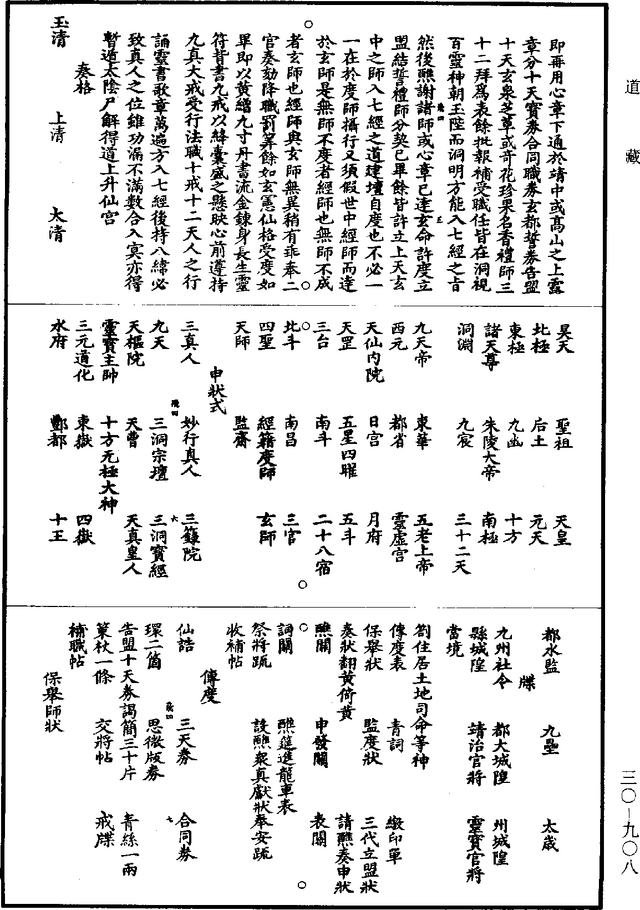 道藏
即再用心章下通於靖中或高山之上露
章分十天寶券合同職券玄都誓券告盟
十天玄泉芝草或奇花珍果名香禮師三
十二拜爲表餘批報補受職任皆在洞視
百靈神朝玉陛而洞明方能入七經之旨
然後醮謝諸師或心章已達玄命許度立
盟結誓禮師分契已畢餘皆許立上天玄
中之師入七經之道建壇自度也不必一
一在於度師攝行又須假世中經師而達
於玄師是無師不度者經師也無師不成
者玄師也經師與玄師無異稍有乖奉二
官奏劾降職罰筭餘如玄憲仙格受度如
畢即以黃繒九寸丹書流金鍊身長生靈
符背書九戒以絳囊盛之懸映心前遵持
九真大戒受行法職十戒十二天人之行
誦靈書歌章萬遍方入七經後持八緯必
致真人之位雖功滿不滿數合入寞亦得
暫遁太陰尸解得道上升仙宫
奏格
玉清 上清 太清
昊天 聖祖 天皇
北極 后土 元天
東極 九幽 十方
諸天尊 朱陵大帝 南極
洞淵 九宸 三十二天
九天帝 東華 五老上帝
西元 都省 靈虛宫
天仙内院 日宫 月府
天罡 五星四曜 五斗
三台 南斗 二十八宿
北斗 南昌 三官
四聖 經籍度師 玄師
天師 監齋
申狀式
三真人 妙行真人 三籙院
九天 三洞宗壇 三洞寶經
天樞院 天曹 天真皇人
靈寶主帥 十方无極大神
三元道化 東嶽 四嶽
水府 酆都 十王
都水監 九壘 太歲
牒
九州社令 都大城隍 州城隍
縣城隍 靖治官將 靈寶官將
當境
劄住居土地司命等神
傳度表 青詞 繳印單
保舉狀 監度狀 三代立盟狀
奏狀翻黃倚黃 請醮奏申狀
醮關 申發關 表關
詞關 醮筵進龍車表
祭將䟽 設醮衆真獻狀奉安䟽
收補帖
傳度
仙誥 三天券 合同券
環二箇 思微版券
告盟十天券謁簡三十片 青絲一兩
策杖一條 交將帖 戒牒
補職帖
保舉師狀
三〇–九〇八